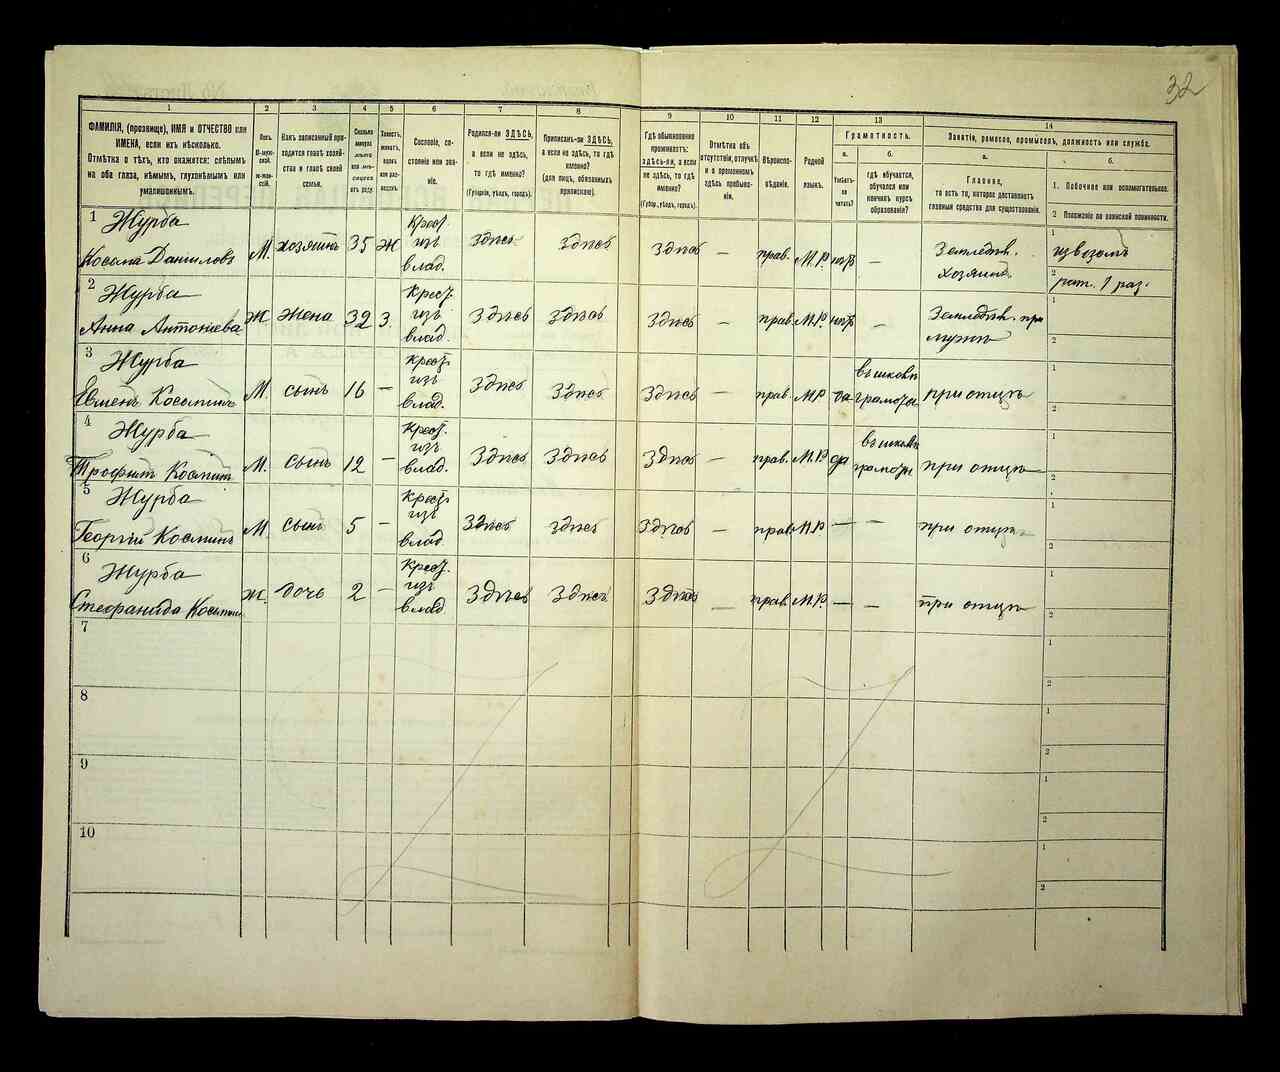 32
1 2 3 4 5 6 7 8 9 10 11 12 13 14
ФАМИЛІЯ, (прозвище), ИМЯ и ОТЧЕСТВО или
ИМЕНА, если ихъ нѣсколько.
Отмѣтка о тѣхъ, кто окажется: слѣпымъ
на оба глаза, нѣмымъ, глухонѣмымъ или
умалишоннымъ.
Полъ.
М-муж-
ской.
Ж-жен-
скій.
Какъ записанный при-
ходится главѣ хозяй-
ства и главѣ своей
семьи.
Сколько
минуло
лѣтъ
или мѣ-
сяцевъ
отъ роду.
Холостъ,
женатъ,
вдовъ
или раз-
веденъ.
Сословіе, со-
стояніе или зва-
ніе.
Родился-ли ЗДѢСЬ,
а если не здѣсь,
то гдѣ именно?
(Губернія, уѣздъ, городъ).
Приписанъ-ли ЗДѢСЬ,
а если не здѣсь, то гдѣ
именно?
(для лицъ, обязанныхъ
припискою).
Гдѣ обыкновенно
проживаетъ:
здѣсь-ли, а если
не здѣсь, то гдѣ
именно?
(Губер., уѣздъ, городъ).
Отмѣтка объ
отсутствіи, отлучкѣ
и о временномъ
здѣсь пребыва-
ніи.
Вѣроиспо-
вѣданіе.
Родной
языкъ.
Грамотность.
а.
Умѣетъ-
ли
читать?
б.
гдѣ обучается,
обучался или
кончилъ курсъ
образованія?
Занятіе, ремесло, промыселъ, должность или служба.
а.
Главное,
то есть то, которое доставляетъ
главныя средства для существованія.
б.
1. Побочное или вспомогательное.
2 Положеніе по воинской повинности.
1 Журба
Косьма Даниловъ М. хозяинъ 35 Ж Крест. изъ влад. Здѣсь Здѣсь Здѣсь — прав. М.Р. нѣтъ — Земледѣл. хозяинъ
1 извозомъ
2 рат. 1 раз.
2 Журба
Анна Антоніева Ж. Жена 32 З. Крест. изъ влад. Здѣсь Здѣсь Здѣсь — прав. М.Р. нѣтъ — Земледѣл. при мужѣ
1
2
3 Журба
Евменъ Косьминъ М. сынъ 16 — Крест. изъ влад. Здѣсь Здѣсь Здѣсь — прав. М.Р. да въ школѣ грамоты при отцѣ
1
2
4 Журба
Трофимъ Косьминъ М. сынъ 12 — Крест. изъ влад. Здѣсь Здѣсь Здѣсь — прав. М.Р. да въ школѣ грамоты при отцѣ
1
2
5 Журба
Георгій Косьминъ М. сынъ 5 — Крест. изъ влад. Здѣсь Здѣсь Здѣсь — прав. М.Р. — — при отцѣ
1
2
6 Журба
Стефанида Косьмина Ж. дочь 2 — Крест. изъ влад. Здѣсь Здѣсь Здѣсь — прав. М.Р. — — при отцѣ
1
2
7
1
2
8
1
2
9
1
2
10
1
2